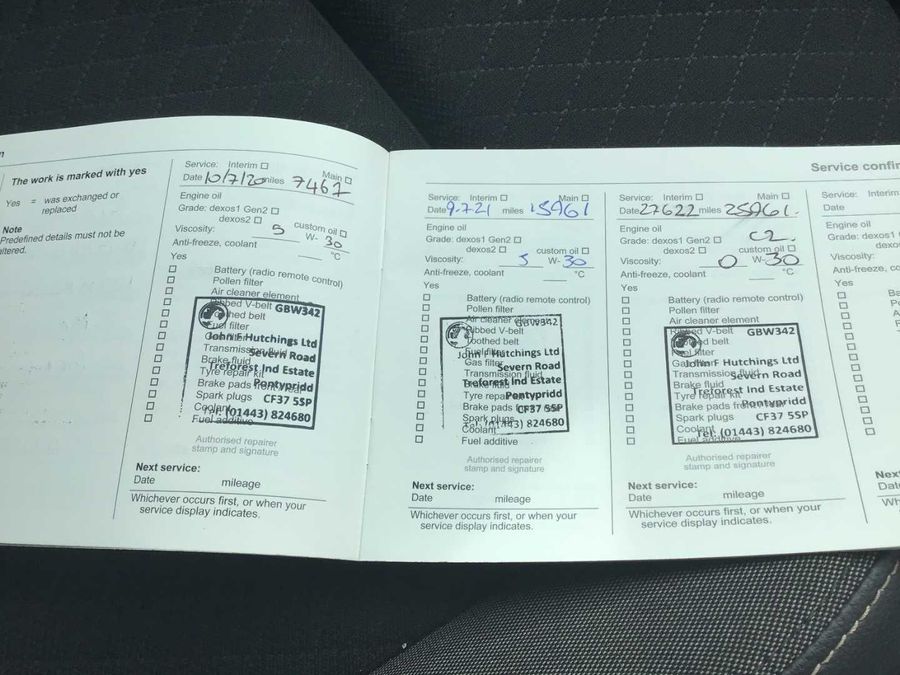 n
The work is marked with yes
Yes = was exchanged or
replaced
Note
Predefined details must not be
altered.
Service: Interim ☐ Main ☐
Date 10/7/20 miles 7467
Engine oil
Grade: dexos1 Gen2 ☐
dexos2 ☐ custom oil ☐
Viscosity: 5 W- 30
Anti-freeze, coolant °C
Yes
☐ Battery (radio remote control)
☐ Pollen filter
☐ Air cleaner element
☐ Ribbed V-belt
☐ Toothed belt
☐ Fuel filter
☐ Gas filter
☐ Transmission fluid
☐ Brake fluid
☐ Tyre repair kit
☐ Brake pads front/rear
☐ Spark plugs
☐ Coolant
☐ Fuel additive
GBW342
John F Hutchings Ltd
Severn Road
Treforest Ind Estate
Pontypridd
CF37 5SP
Tel: (01443) 824680
Authorised repairer
stamp and signature
Next service:
Date mileage
Whichever occurs first, or when your
service display indicates.
Service confir
Service: Interim ☐ Main ☐
Date 9.7.21 miles 15961
Engine oil
Grade: dexos1 Gen2 ☐
dexos2 ☐ custom oil ☐
Viscosity: 5 W- 30
Anti-freeze, coolant °C
Yes
☐ Battery (radio remote control)
☐ Pollen filter
☐ Air cleaner element
☐ Ribbed V-belt
☐ Toothed belt
☐ Fuel filter
☐ Gas filter
☐ Transmission fluid
☐ Brake fluid
☐ Tyre repair kit
☐ Brake pads
☐ Spark plugs
☐ Coolant
☐ Fuel additive
GBW342
John F Hutchings Ltd
Severn Road
Treforest Ind Estate
Pontypridd
CF37 5SP
Tel: (01443) 824680
Authorised repairer
stamp and signature
Next service:
Date mileage
Whichever occurs first, or when your
service display indicates.
Service: Interim ☐ Main ☐
Date 27622 miles 25961.
Engine oil
Grade: dexos1 Gen2 ☐ C2
dexos2 ☐ custom oil ☐
Viscosity: 0 W- 30
Anti-freeze, coolant °C
Yes
☐ Battery (radio remote control)
☐ Pollen filter
☐ Air cleaner element
☐ Ribbed V-belt
☐ Toothed belt
☐ Fuel filter
☐ Gas filter
☐ Transmission fluid
☐ Brake fluid
☐ Tyre repair kit
☐ Brake pads front/rear
☐ Spark plugs
☐ Coolant
☐ Fuel additive
GBW342
John F Hutchings Ltd
Severn Road
Treforest Ind Estate
Pontypridd
CF37 5SP
Tel: (01443) 824680
Authorised repairer
stamp and signature
Next service:
Date mileage
Whichever occurs first, or when your
service display indicates.
Service: Interim
Date
Engine oil
Grade: dexos1 G
dexo
Viscosity:
Anti-freeze, coola
Yes
Ba
Po
Next
Date
Wh